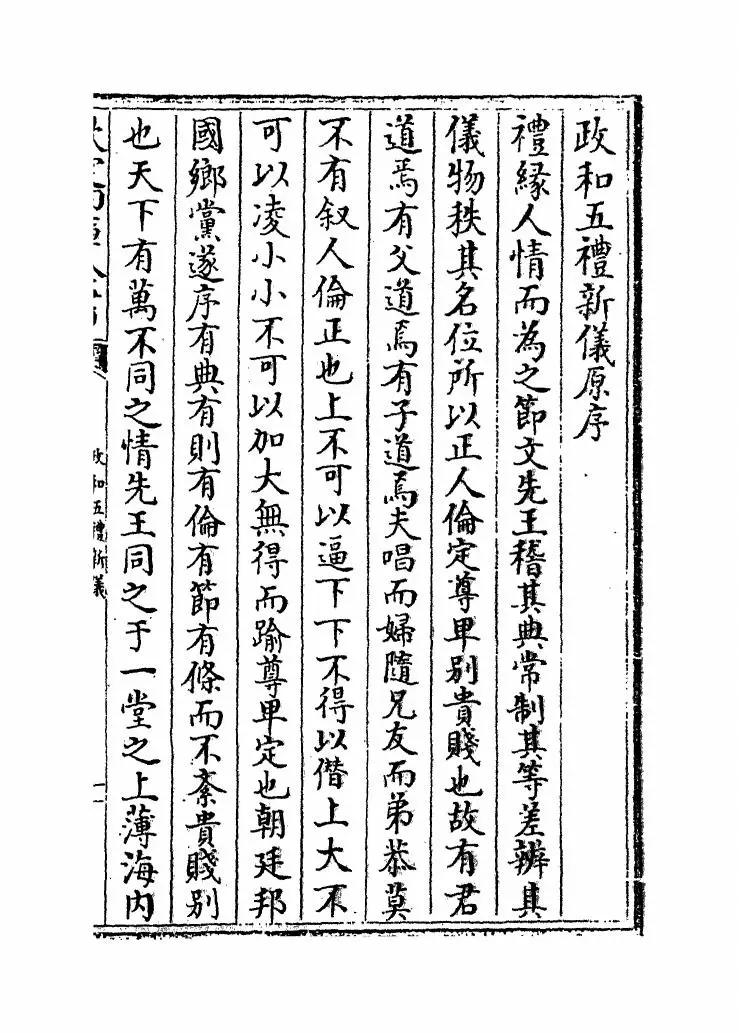 政和五禮新儀原序
禮緣人情而為之節文先王稽其典常制其等差辨其
儀物秩其名位所以正人倫定尊卑別貴賤也故有君
道焉有父道焉有子道焉夫唱而婦隨兄友而弟恭莫
不有叙人倫正也上不可以逼下下不得以僭上大不
可以凌小小不可以加大無得而踰尊卑定也朝廷邦
國鄉黨遂序有典有則有倫有節有條而不紊貴賤別
也天下有萬不同之情先王同之于一堂之上薄海內
政和五禮新儀